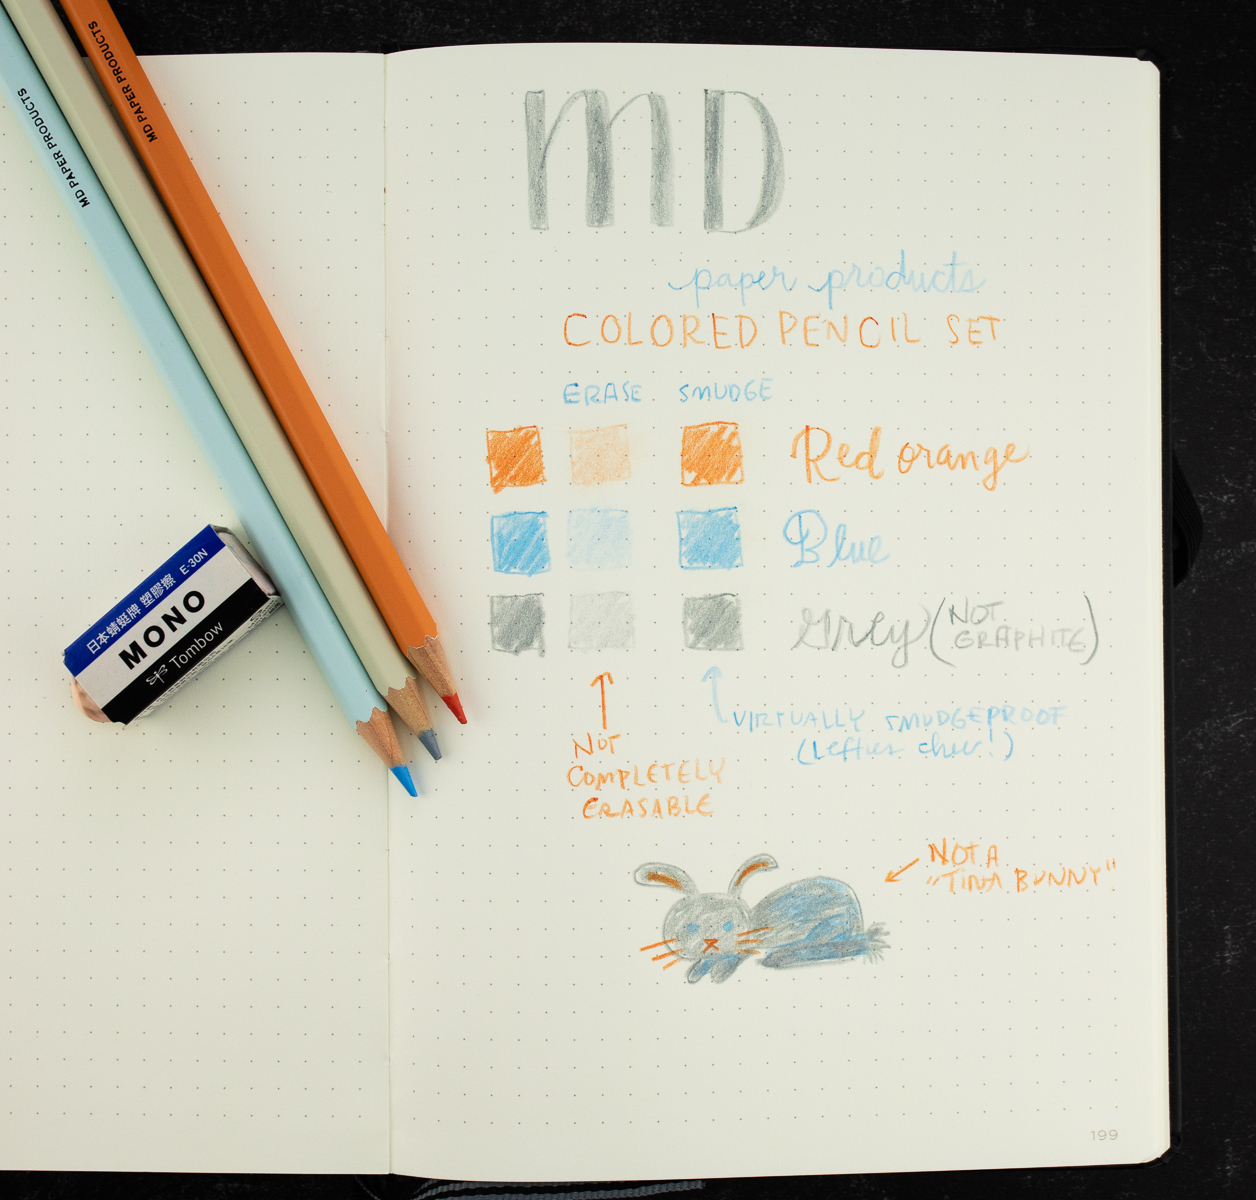 MD PAPER PRODUCTS
MD PAPER PRODUCTS
日本蜻蜓牌 塑膠擦 E-30N
MONO
Tombow
MD
paper products
COLORED PENCIL SET
ERASE SMUDGE
Red orange
Blue
Grey (NOT GRAPHITE)
NOT
COMPLETELY
ERASABLE
VIRTUALLY SMUDGEPROOF
(Lefties cheer!)
NOT A
"TINA BUNNY"
199